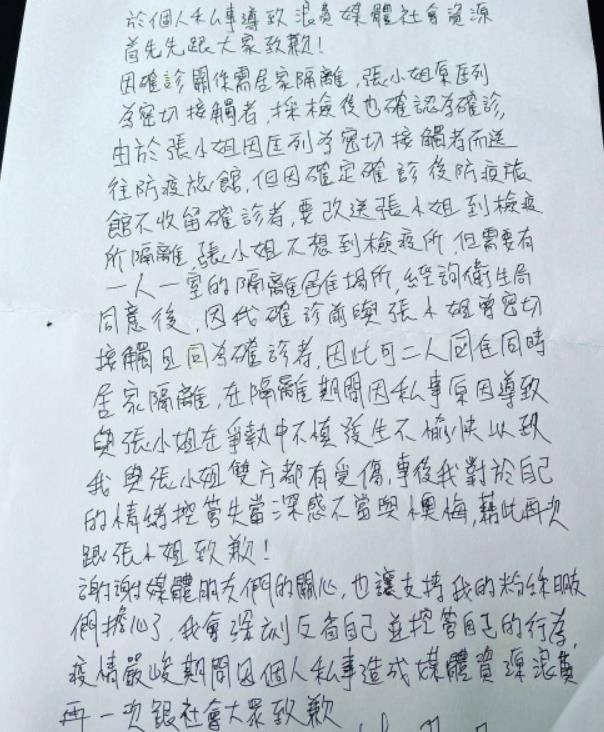 於個人私事導致浪費媒體社會資源
首先先跟大家致歉!
因確診關係需居家隔離,張小姐原匡列
為密切接觸者,採檢後也確認為確診,
由於張小姐因匡列為密切接觸者而送
往防疫旅館,但因確定確診後防疫旅
館不收留確診者,要改送張小姐到檢疫
所隔離,張小姐不想到檢疫所,但需要有
一人一室的隔離居住場所,經詢衛生局
同意後,因我確診前與張小姐曾密切
接觸且同為確診者,因此可二人同住同時
居家隔離,在隔離期間因私事原因導致
與張小姐在爭執中不慎發生不愉快以致
我與張小姐雙方都有受傷,事後我對於自己
的情緒控管失當深感不當與懊悔,藉此再次
跟張小姐致歉!
謝謝媒體朋友們的關心,也讓支持我的粉絲朋友
們擔心了,我會深刻反省自己並控管自己的行為,
疫情嚴峻期間因個人私事造成媒體資源浪費
再一次跟社會大眾致歉